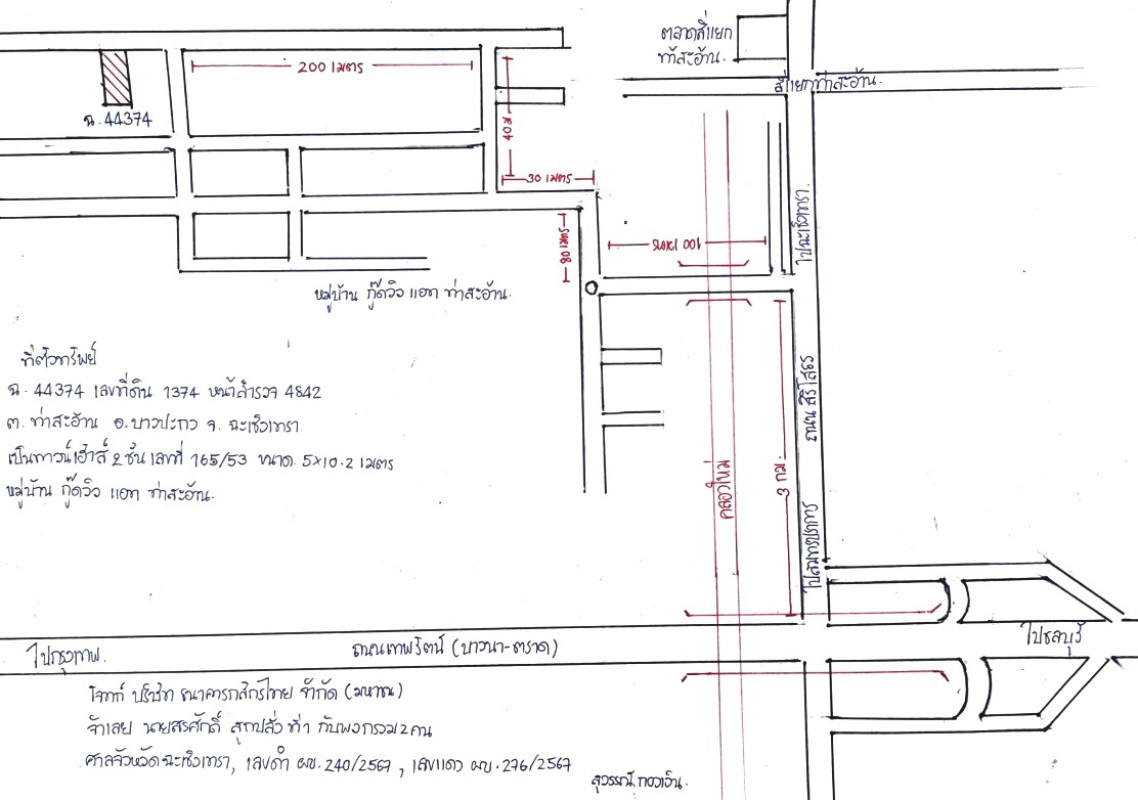 ตลาดสี่แยก
ท่าสะอ้าน.
สี่แยกท่าสะอ้าน.
200 เมตร
ฉ.44374
40 ม
30 เมตร
80 เมตร
100 เมตร
ไปฉะเชิงเทรา.
หมู่บ้าน กู๊ดวิว แอท ท่าสะอ้าน.
ที่ตั้งทรัพย์
ฉ. 44374 เลขที่ดิน 1374 หน้าสำรวจ 4842
ต. ท่าสะอ้าน อ.บางปะกง จ. ฉะเชิงเทรา
เป็นทาวน์เฮ้าส์ 2 ชั้น เลขที่ 165/53 ขนาด. 5×10.2 เมตร
หมู่บ้าน กู๊ดวิว แอท ท่าสะอ้าน.
ถนน สิริโสธร
คลองใหม่
3 กม.
ไปสมุทรปราการ
ไปกรุงเทพ.
ถนนเทพรัตน์ (บางนา-ตราด)
ไปชลบุรี
โจทก์ บริษัท ธนาคารกสิกรไทย จำกัด (มหาชน)
จำเลย นายสรศักดิ์ ที่ 1 กับพวกรวม 2 คน
ศาลจังหวัดฉะเชิงเทรา, เลขดำ ผบ.240/2567, เลขแดง ผบ.276/2567